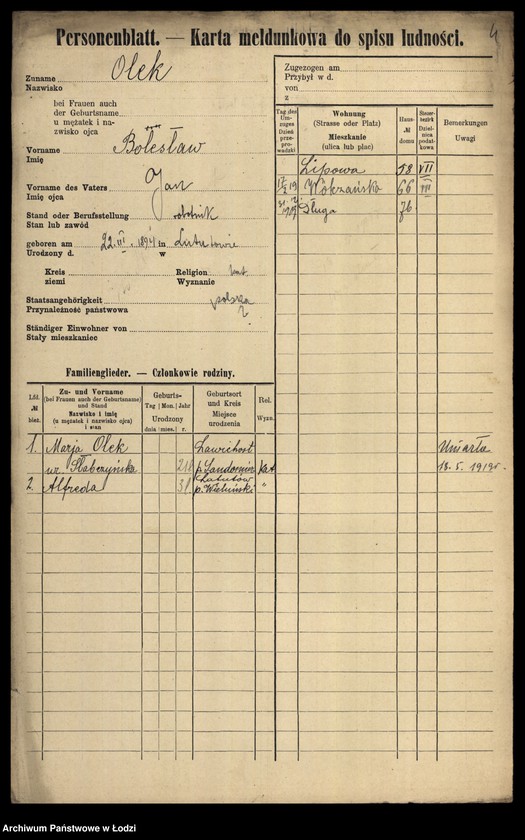 4
Personenblatt. — Karta meldunkowa do spisu ludności.
Zuname Olek
Nazwisko
bei Frauen auch
der Geburtsname
u mężatek i na-
zwisko ojca
Vorname Bolesław
Imię
Vorname des Vaters Jan
Imię ojca
Stand oder Berufsstellung robotnik
Stan lub zawód
geboren am 22. VI. 1894 in Lututowie
Urodzony d. w
Kreis Religion kat
ziemi Wyznanie
Staatsangehörigkeit polska
Przynależność państwowa
Ständiger Einwohner von
Stały mieszkaniec
Zugezogen am
Przybył w d.
von
z
Tag des Umzuges Dzień przeprowadzki
Wohnung
(Strasse oder Platz)
Mieszkanie
(ulica lub plac)
Haus-
№
domu
Steuerbezirk Dzielnica podatkowa
Bemerkungen
Uwagi
Lipowa 58 VII
17/2 19 Wólczańska 66 VII
1919 Długa 76
Familienglieder. — Członkowie rodziny.
Lfd.
№
bież.
Zu- und Vorname
(bei Frauen auch der Geburtsname)
und Stand
Nazwisko i imię
(u mężatek i nazwisko ojca)
i stan
Geburts-
Tag Mon. Jahr
Urodzony
dnia mies. r.
Geburtsort
und Kreis
Miejsce
urodzenia
Rel.
Wyzn.
1. Marja Olek Zawichost Umarła
ur. Słabczyńska 21 p. Sandomierz kat 18. 5. 1919 r.
2. Alfreda 3 Lututów
p. Wieluński "
Archiwum Państwowe w Łodzi